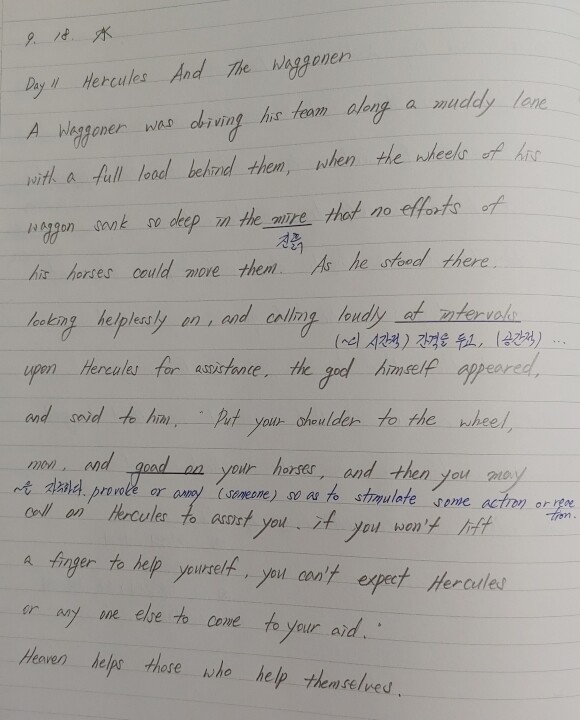 9. 18. 水
Day 11 Hercules And The Waggoner
A Waggoner was driving his team along a muddy lane
with a full load behind them, when the wheels of his
waggon sank so deep in the mire that no efforts of
진흙
his horses could move them. As he stood there.
looking helplessly on, and calling loudly at intervals
(~의 시간적) 간격을 두고, (공간적) ...
upon Hercules for assistance, the god himself appeared,
and said to him, " Put your shoulder to the wheel,
man, and goad on your horses, and then you may
~을 자극하다. provoke or annoy (someone) so as to stimulate some action or reac
tion.
call on Hercules to assist you. if you won't lift
a finger to help yourself, you can't expect Hercules
or any one else to come to your aid. "
Heaven helps those who help themselves.